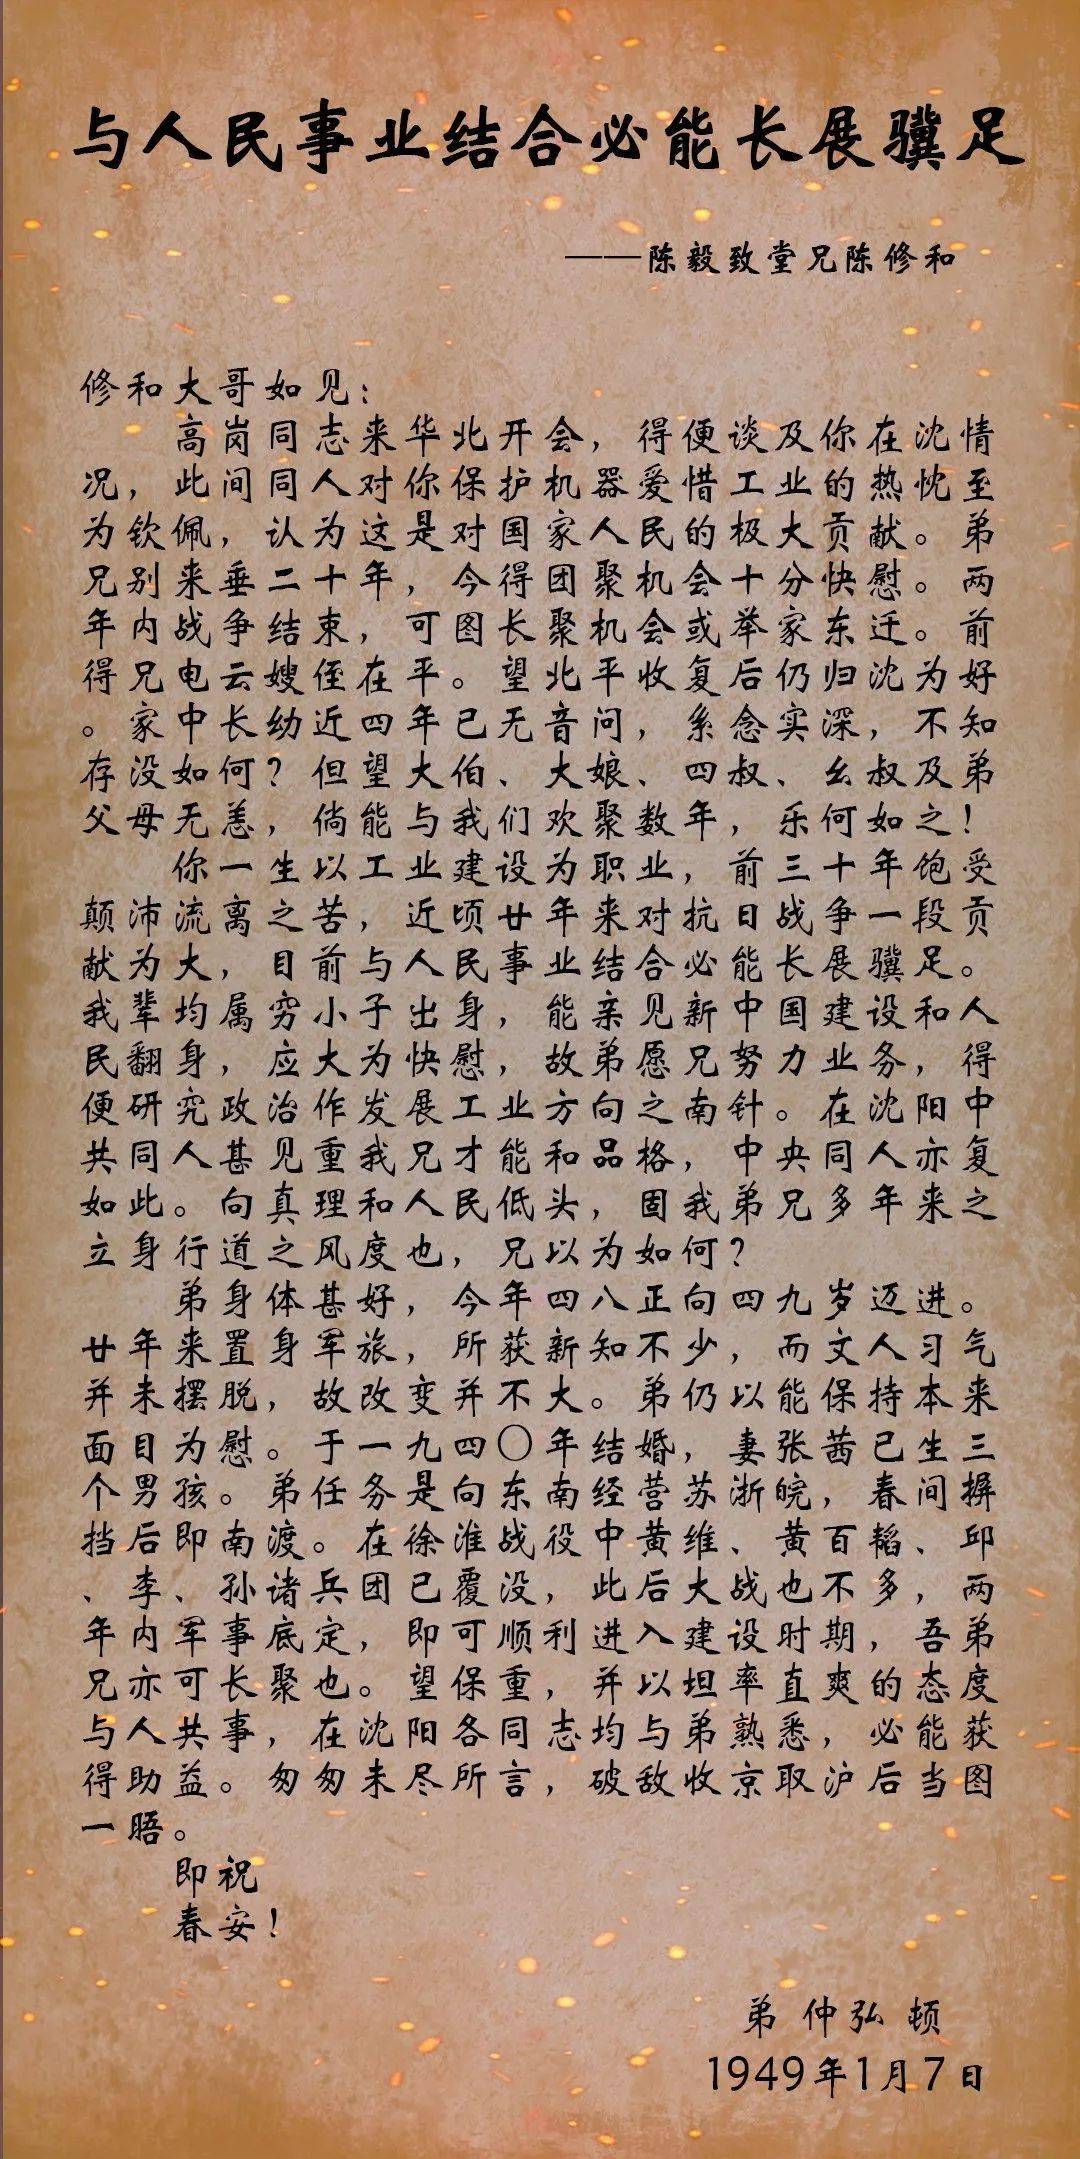 与人民事业结合必能长展骥足
——陈毅致堂兄陈修和
修和大哥如见：
高岗同志来华北开会，得便谈及你在沈情
况，此间同人对你保护机器爱惜工业的热忱至
为钦佩，认为这是对国家人民的极大贡献。弟
兄别来垂二十年，今得团聚机会十分快慰。两
年内战争结束，可图长聚机会或举家东迁。前
得兄电云嫂侄在平。望北平收复后仍归沈为好
。家中长幼近四年已无音问，系念实深，不知
存没如何？但望大伯、大娘、四叔、幺叔及弟
父母无恙，倘能与我们欢聚数年，乐何如之！
你一生以工业建设为职业，前三十年饱受
颠沛流离之苦，近顷廿年来对抗日战争一段贡
献为大，目前与人民事业结合必能长展骥足。
我辈均属穷小子出身，能亲见新中国建设和人
民翻身，应大为快慰，故弟愿兄努力业务，得
便研究政治作发展工业方向之南针。在沈阳中
共同人甚见重我兄才能和品格，中央同人亦复
如此。向真理和人民低头，固我弟兄多年来之
立身行道之风度也，兄以为如何？
弟身体甚好，今年四八正向四九岁迈进。
廿年来置身军旅，所获新知不少，而文人习气
并未摆脱，故改变并不大。弟仍以能保持本来
面目为慰。于一九四〇年结婚，妻张茜已生三
个男孩。弟任务是向东南经营苏浙皖，春间摒
挡后即南渡。在徐淮战役中黄维、黄百韬、邱
、李、孙诸兵团已覆没，此后大战也不多，两
年内军事底定，即可顺利进入建设时期，吾弟
兄亦可长聚也。望保重，并以坦率直爽的态度
与人共事，在沈阳各同志均与弟熟悉，必能获
得助益。匆匆未尽所言，破敌收京取沪后当图
一晤。
即祝
春安！
弟 仲弘 顿
1949年1月7日